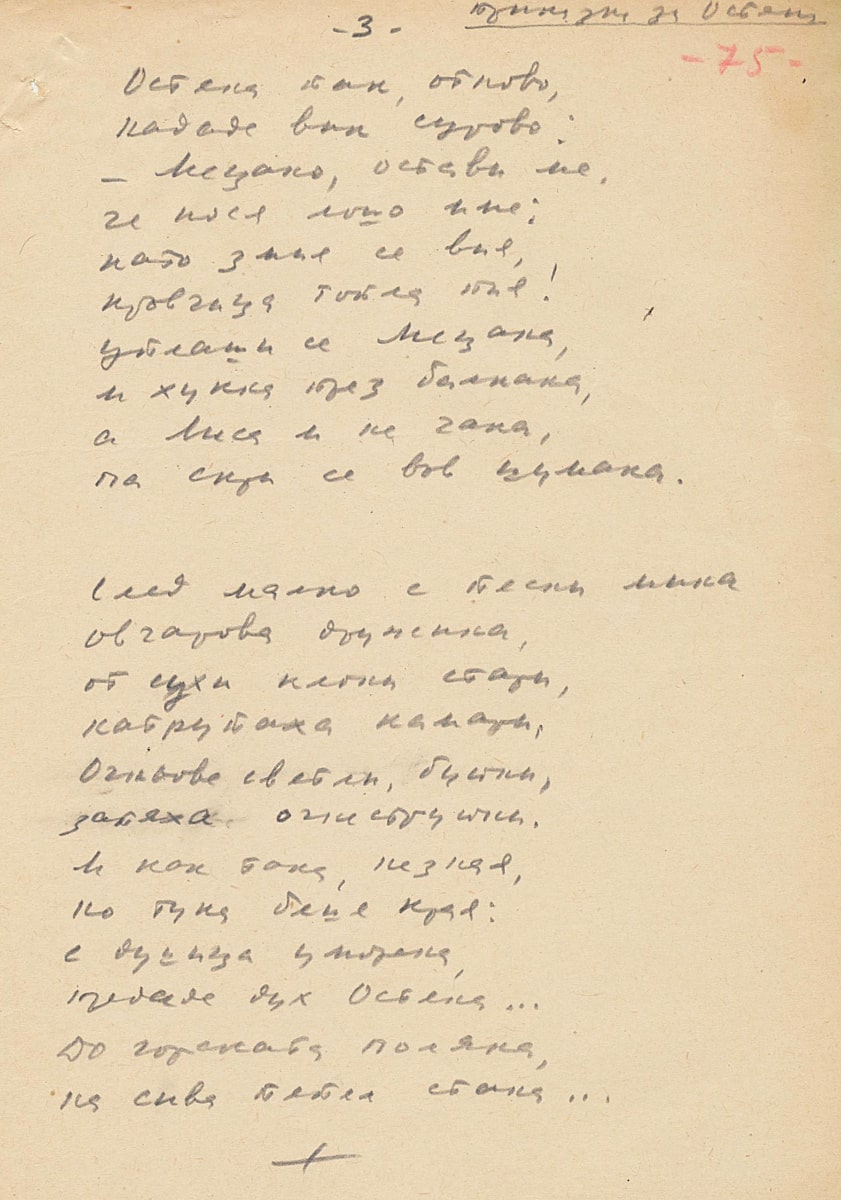 - 3 -
Приказка за Остена
- 75 -
Остена пак, отново,
нададе вик сурово:
– Мецано, остави ме,
че нося лошо име:
като змия се вия,
кръвчица топла пия!
уплаши се Мецана,
и хукна през балкана,
а Лиса и не чака,
па скри се във шумака.
След малко с песни мина
овчарова дружина,
от сухи клони стари,
натрупаха камари,
Огньове светли, буйни,
запяха огнеструйни.
И как така, незная,
но тука беше края:
с душица уморена,
предаде дух Остена...
До горската поляна,
на сива пепел стана...